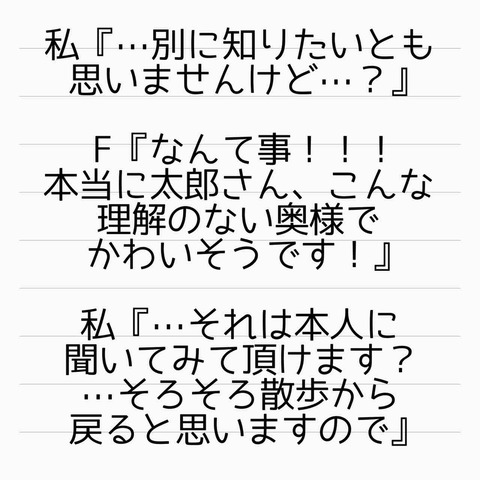 私『…別に知りたいとも
思いませんけど…？』
F『なんて事！！！
本当に太郎さん、こんな
理解のない奥様で
かわいそうです！』
私『…それは本人に
聞いてみて頂けます？
…そろそろ散歩から
戻ると思いますので』